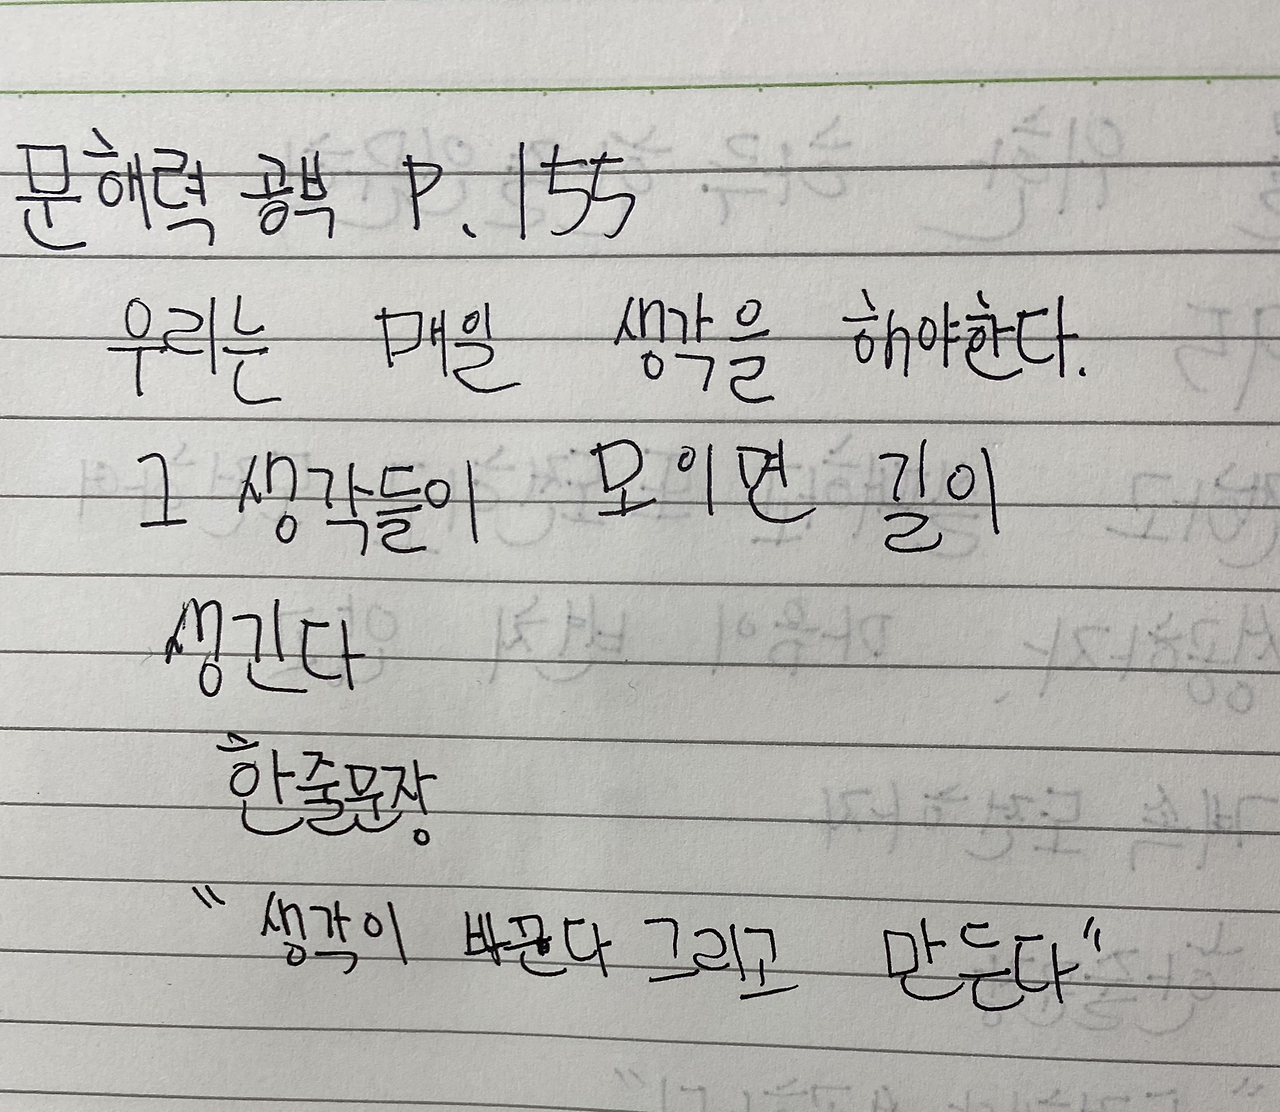 문해력 공부 P.155
우리는 매일 생각을 해야한다.
그 생각들이 모이면 길이
생긴다
한줄문장
"생각이 바꾼다 그리고 만든다"